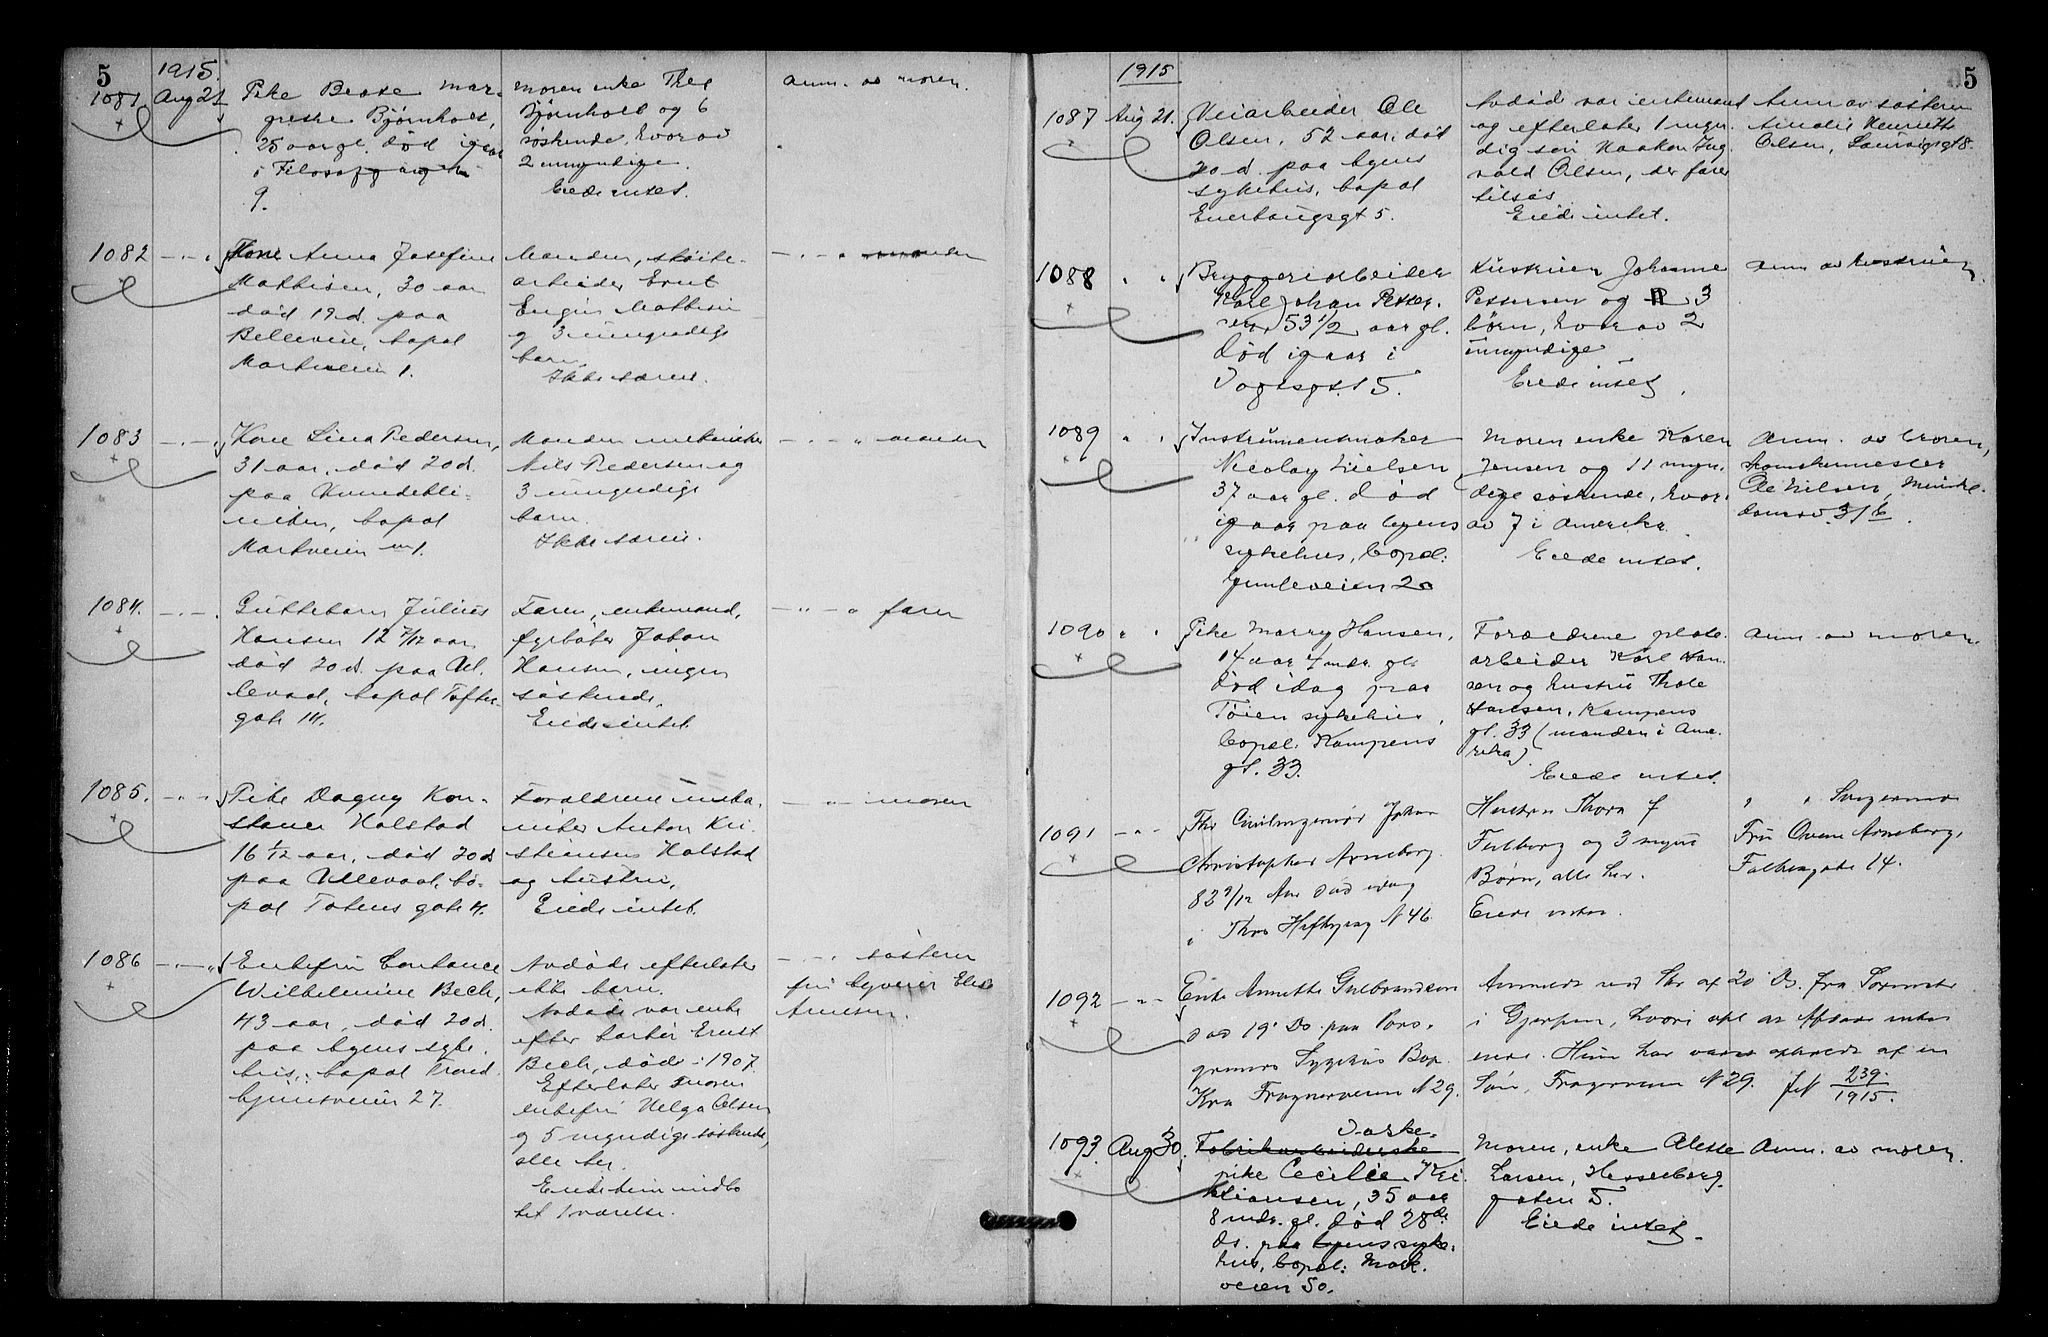 5
1915.
1081 Aug 21 Pike Beate Mar-
grethe Bjørnholt,
25 aar gl. død igaar
i Filosofgangen
9.
moren enke Thea
Bjørnholt og 6
søskende, hvorav
2 umyndige.
Eiede intet.
anm. av moren.
1082 Kone Anna Josefine
Mathisen, 30 aar
død 19d. paa
Bellevue, bopæl
Markveien 1.
Manden,
arbeider
Mathisen
og 3 umyndige
barn.
Ikke særeie.
manden
1083 Kone Lina Pedersen,
31 aar, død 20d.
paa Kvindekli-
niken, bopæl
Markveien 1.
Manden mekaniker
Nils Pedersen og
3 umyndige
barn.
Ikke særeie.
manden
1084. Guttebarn Julius
Hansen 12 7/12 aar,
død 20d. paa Ul-
levaal, bopæl Tofte-
gate 14.
Faren, enkemand,
fyrbøter Johan
Hansen, ingen
søskende.
Eiede intet.
faren
1085. Pike Dagny Kon-
stance Halstad
16 1/12 aar, død 20d
paa Ullevaal, bo-
pæl Totens gate 4.
Forældrene
Anton Kri-
stiansen Halstad
og hustru,
Eiede intet.
moren
1086 Enkefru Constance
Wilhelmine Bech,
43 aar, død 20d.
paa byens syke-
hus, bopæl Trond-
hjemsveien 27.
Avdøde efterlater
ikke barn.
Avdøde var enke
efter barber Ernst
Bech, død i 1907.
Efterlater moren
enkefru Helga Olsen
og 5 myndige søskende,
alle her.
Eiede kun indbo
til 1 værelse.
søsteren
fru
5
1915
1087 Aug 21. Veiarbeider Ole
Olsen, 52 aar, død
20d. paa byens
sykehus, bopæl
Enerhaugsgt 5.
Avdød var enkemand
og efterlater 1 myn-
dig søn Haakon Ing-
vald Olsen, der farer
tilsøs.
Eiede intet.
Anm av søsteren
Amalie Henriette
Olsen,
1088 Bryggeriarbeider
Karl Johan Petter-
sen 53 1/2 aar gl.
Død igaar i
Vogtsgt. 15.
Hustruen Johanne
Pettersen og 3
børn, hvorav 2
umyndige
Eiede intet.
anm av hustruen.
1089 Instrumentmaker
Nicolay Nielsen
37 aar gl. død
igaar paa byens
sykehus, bopæl:
Gunleveien 20
Moren enke Karen
Jensen og 11 myn-
dige søskende, hvor-
av 7 i Amerika.
Eiede intet.
Anm. av broren,
Ole Nilsen,
31 b.
1090 Pike Marry Hansen,
14 aar 7 mdr. gl.
død idag paa
Tøien sykehus,
bopæl: Kampens
gt. 33.
Forældrene plate-
arbeider Karl Han-
sen og hustru Thale
Hansen, Kampens
gt. 33 (manden i Ame-
rika).
Eiede intet.
anm. av moren.
1091 Fhv Civilingeniør Johan
Christopher Arneberg.
82 9/12 Aar død idag
i Thos Heftyesg N 46
Hustru Thora f
Fehlborg og 3 myns
Børn, alle her.
Eiede intet.
Svigermor
Fru Arneberg,
14.
1092 Enke Annette Gulbrandsen
død 19' Ds. paa Pors-
grunds Sygehus Bop.
Kra Frognerveien N 29.
Anmeldt ved Skr af 20 Ds. fra
i Gjerpen, hvori opl at Afdøde intet
eiede. Hun har været opholdt af en
Søn, Frognerveien N 29. JN 239/1915.
1093. Aug 30. Fabrikarbeiderske Vaske-
pike Cecilie Kri-
stiansen, 35 aar
8 mdr. gl. Død 28de
ds. paa byens syke-
hus, bopæl: Mark-
veien 50.
Moren, enke Alette
Larsen, Hesselberg-
gaten 5.
Eiede intet.
Anm. av moren.